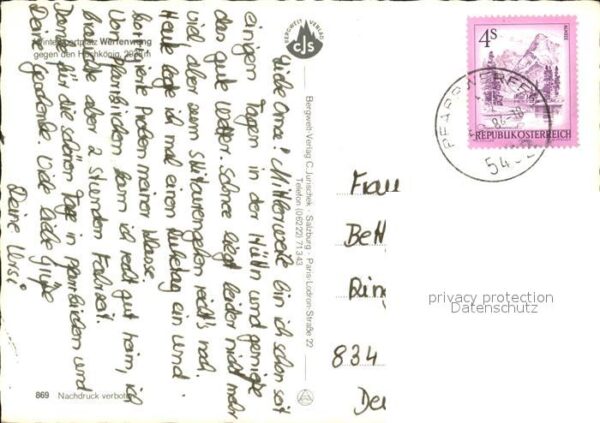 Wintersportplatz Werfenweng
gegen den Hochkönig, 2941 m
BERGWELT VERLAG
CJS
Bergwelt-Verlag C. Jurischek · Salzburg · Paris-Lodron-Straße 22
Telefon (06222) 71343
869 Nachdruck verboten
Liebe Oma! Mittlerweile bin ich schon seit
einigen Tagen in der Hütt'n und genieße
das gute Wetter. Schnee liegt leider nicht mehr
viel aber zum skitourengehen reicht's noch.
Heute lege ich mal einen Ruhetag ein und
Proben meiner Klasse.
Von Pfarrbichln kann ich recht gut heim, ich
brauche aber 2 Stunden Fahrzeit.
Danke für die schönen Tage in Pfarrbichln und
Deine Geschenke. Viele liebe Grüße
Deine Ursi
4s
REPUBLIK ÖSTERREICH
PFARRWERFEN
5452
Frau
Bett
Ring
834
Deu
privacy protection
Datenschutz